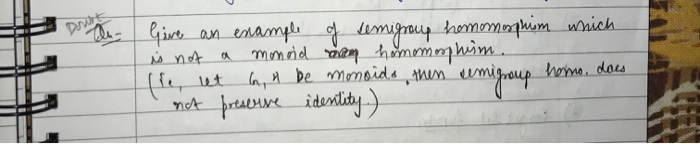 Doubt
Qu= Give an example of semigroup homomorphism which
is not a monoid homomorphism.
(Ie, let G, H be monoids, then semigroup homo. does
not preserve identity.)